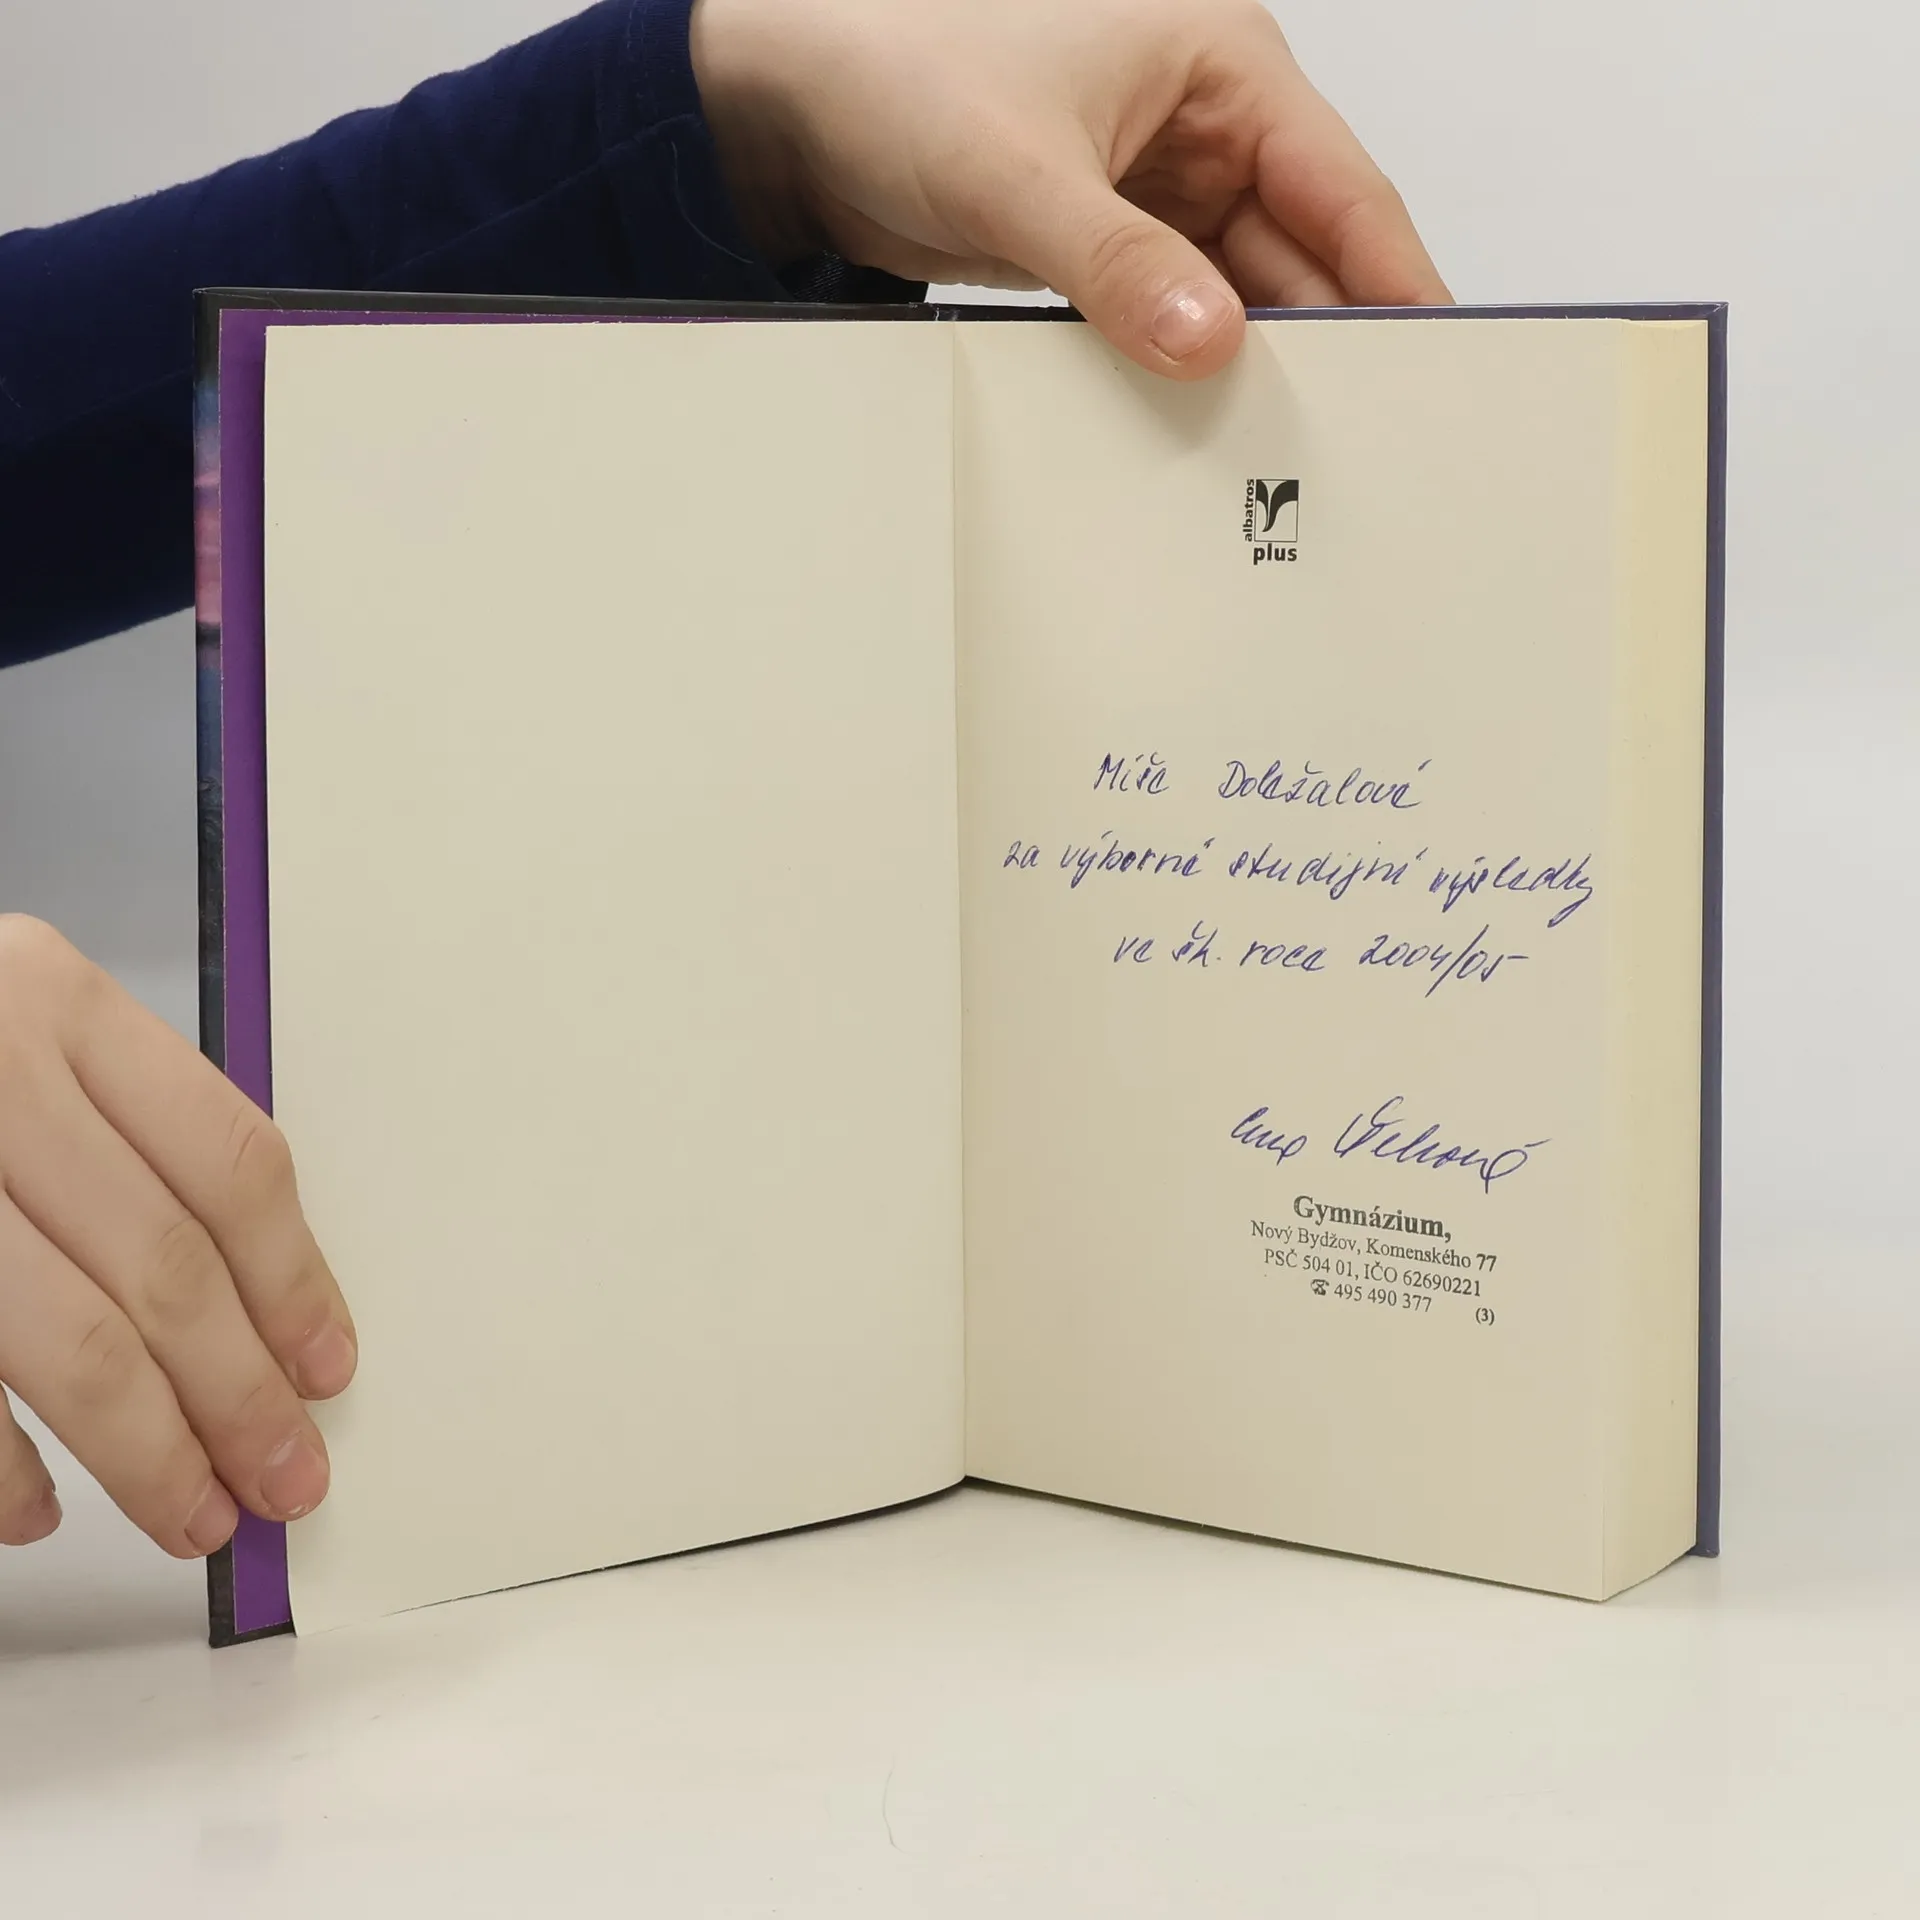 albatros
plus
Míše Doležalové
za výborné studijní výsledky
ve šk. roce 2004/05
Gymnázium,
Nový Bydžov, Komenského 77
PSČ 504 01, IČO 62690221
☎ 495 490 377 (3)